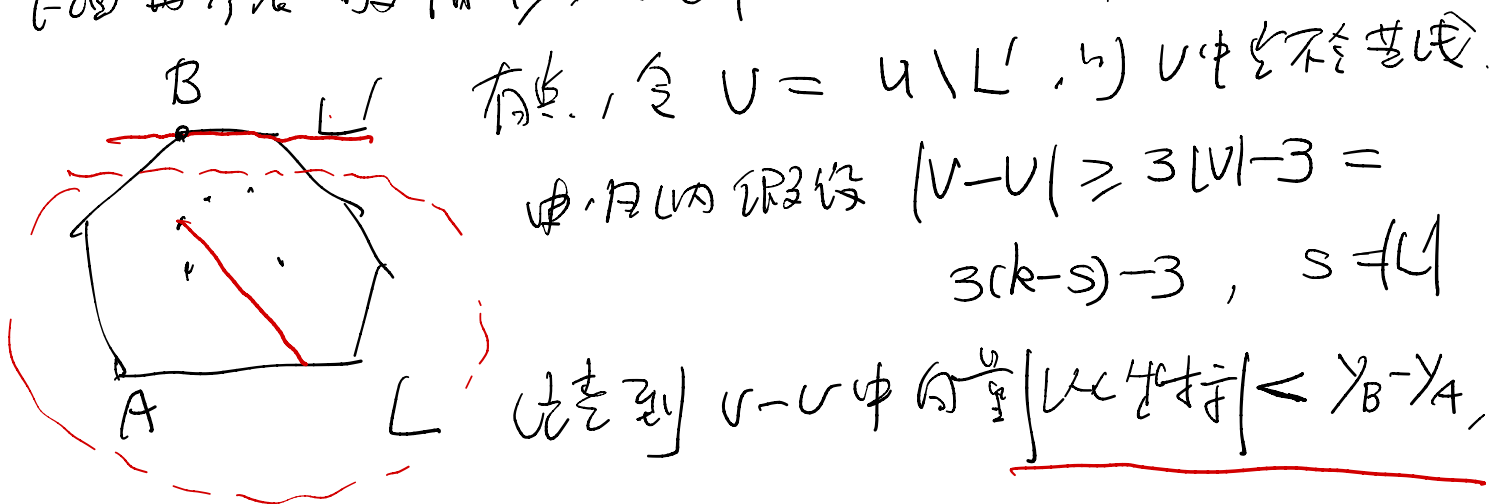 B
L'
有点,令 U = U \ L',则 U 中点不全共线.
由归纳假设 |U-U| ≥ 3|U|-3 =
3(k-s)-3 , s = |L'|
A
L
注意到 U-U 中向量 |y坐标| < y_B-y_A,